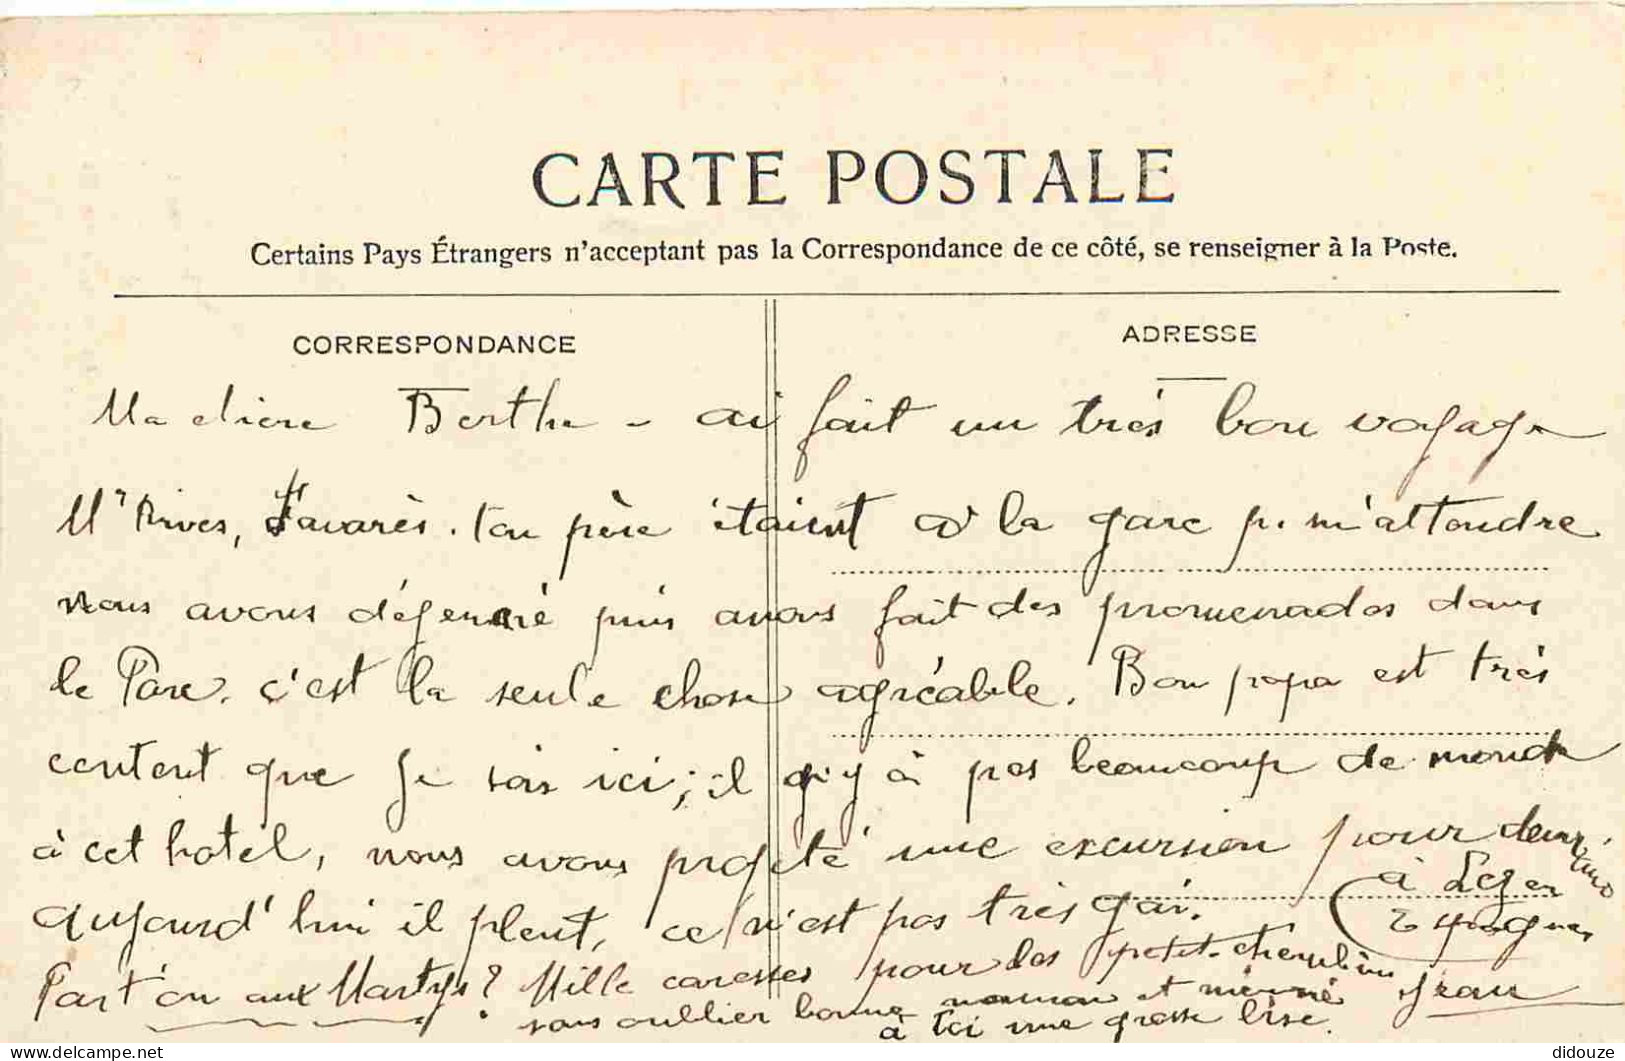 CARTE POSTALE
Certains Pays Étrangers n'acceptent pas la Correspondance de ce côté, se renseigner à la Poste.
CORRESPONDANCE
ADRESSE
Ma chère Berthe - ai fait un très bon voyage
Mr Rives, Tavarès. ton père étaient à la gare p. m'attendre
nous avons déjeuné puis avons fait des promenades dans
le Parc. c'est la seule chose agréable. Bon papa est très
content que je sois ici; il n'y à pas beaucoup de monde
à cet hotel, nous avons projeté une excursion pour demain
à Lez en
Espagne
aujourd'hui il pleut, ce n'est pas très gai.
Part'on aux Martys? Mille caresses pour les petits chérubins
sans oublier bonne maman et mémé Jean
à toi une grosse bise.
didouze
delcampe.net